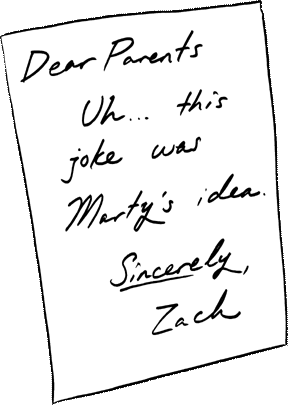 Dear Parents
Uh... this
joke was
Marty's idea.
Sincerely,
Zach